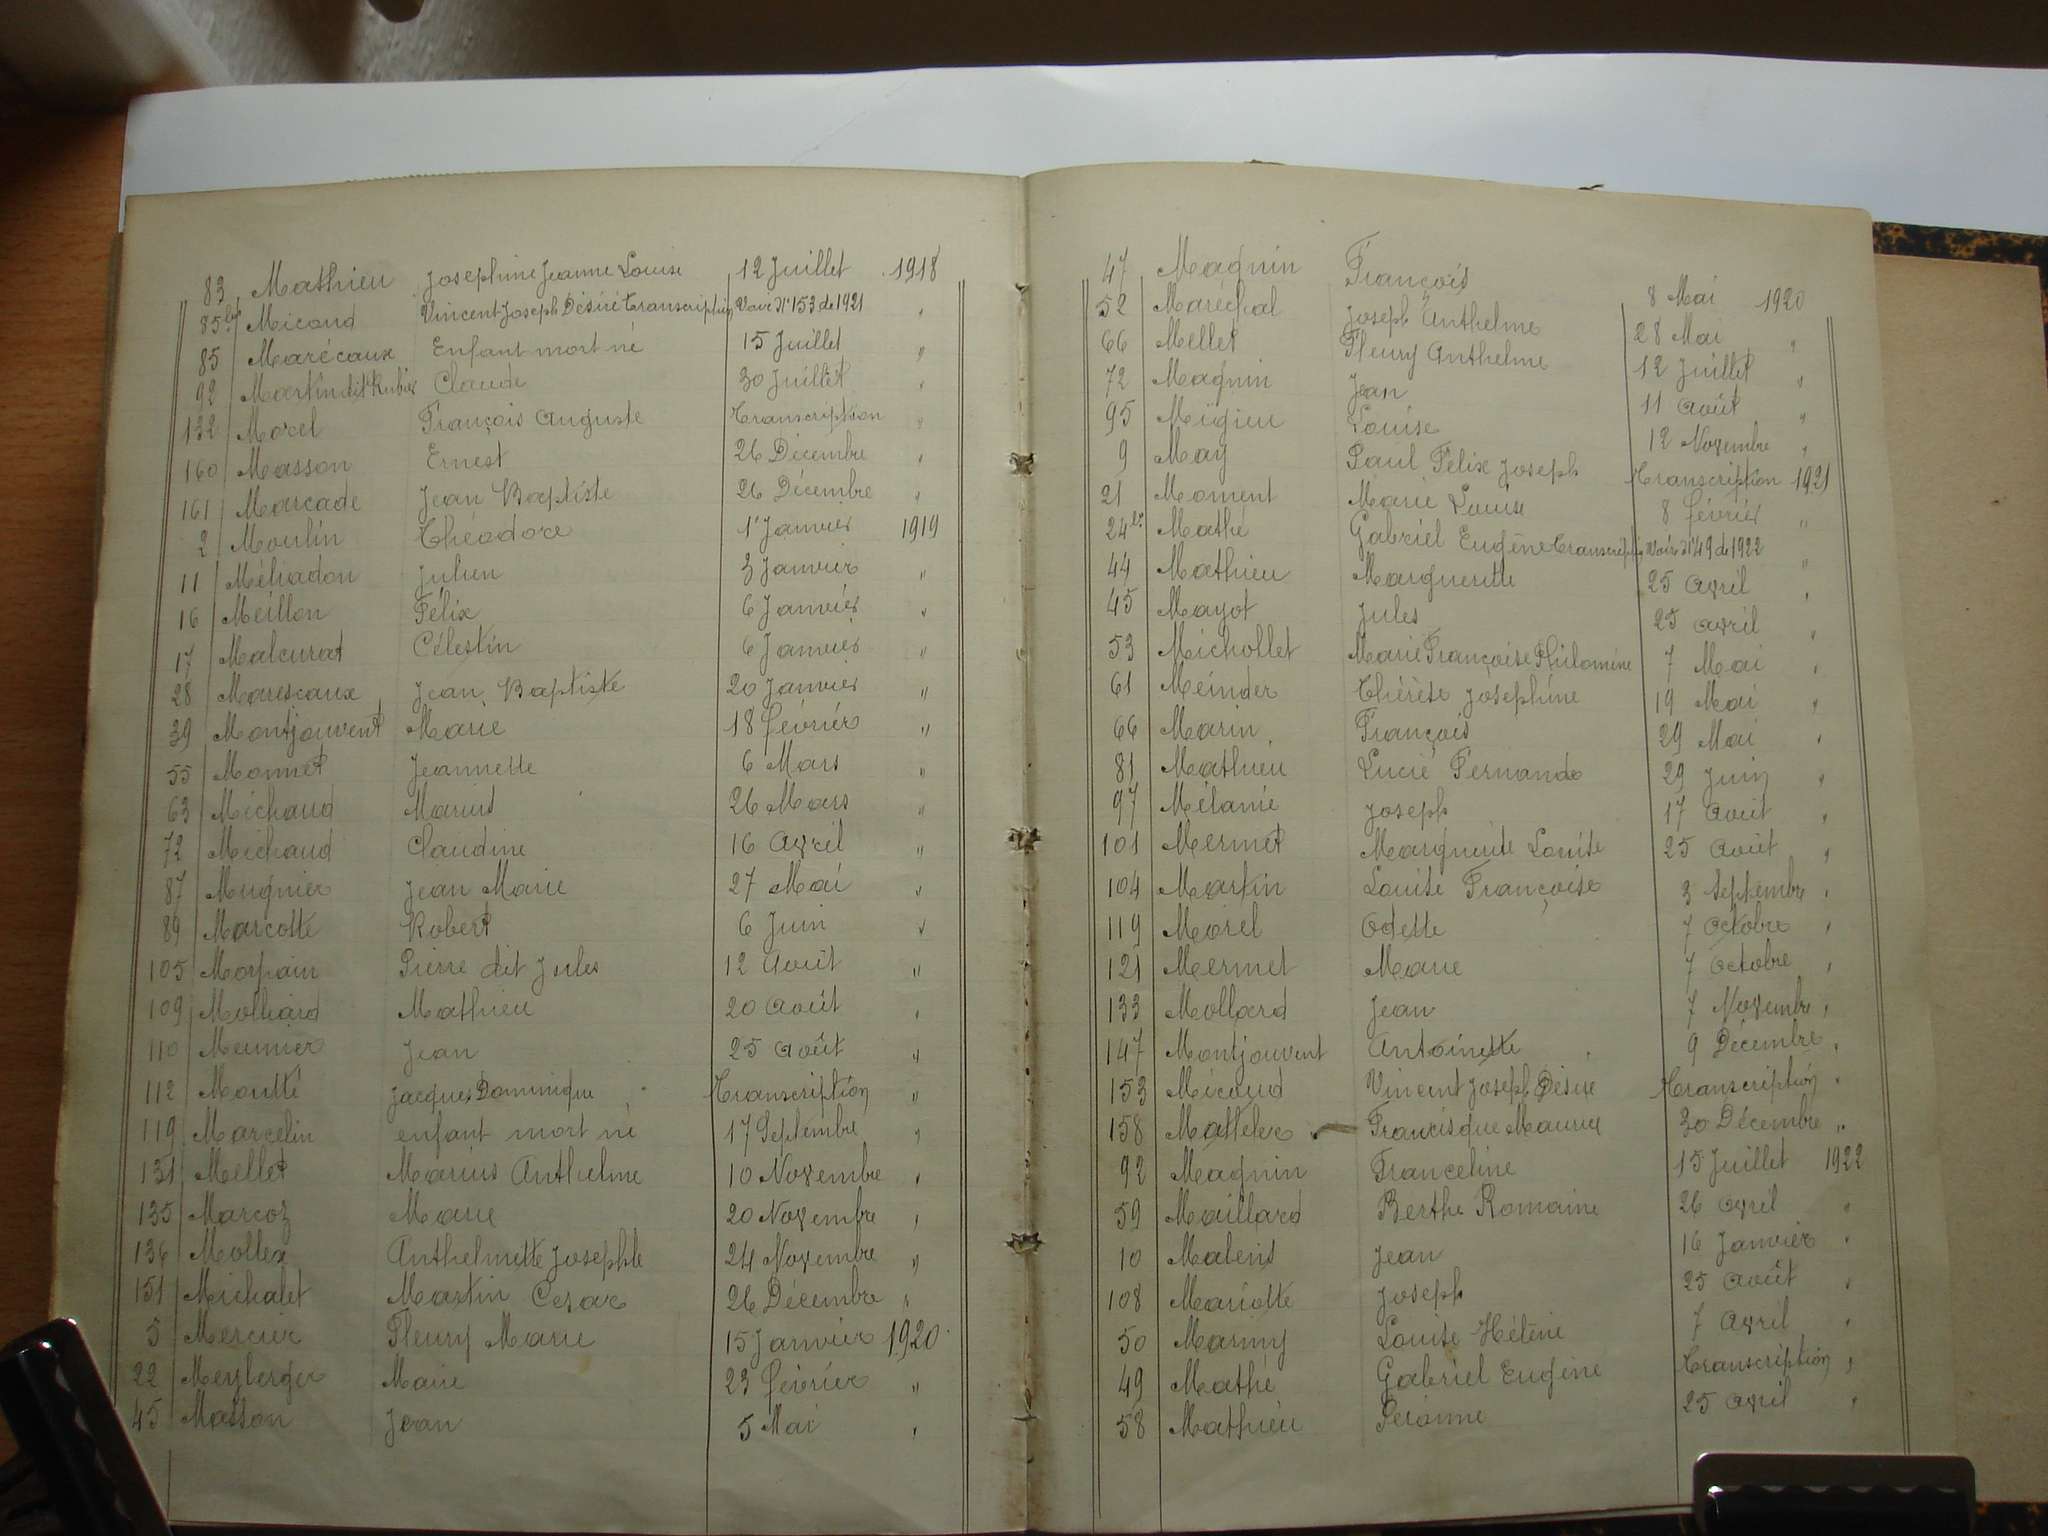 83 Mathieu Joséphine Jeanne Louise 12 Juillet 1918
85 bis Micoud Vincent Joseph Désiré Transcription Voir N° 153 de 1921 "
85 Marécaux Enfant mort né 15 Juillet "
92 Martin dit Rubier Claude 30 Juillet "
132 Morel François Auguste Transcription "
160 Masson Ernest 26 Décembre "
161 Marcade Jean Baptiste 26 Décembre "
2 Moulin Théodore 1er Janvier 1919
11 Méliadon Julien 3 Janvier "
16 Meillon Félix 6 Janvier "
17 Malcurat Célestin 6 Janvier "
28 Marescaux Jean Baptiste 20 Janvier "
39 Montjouvent Marie 18 février "
55 Monnet Jeannette 6 Mars "
63 Michaud Marius 26 Mars "
72 Michaud Claudine 16 Avril "
87 Mugnier Jean Marie 27 Mai "
89 Marcotte Robert 6 Juin "
105 Morpain Pierre dit Jules 12 Août "
109 Molliard Mathieu 20 Août "
110 Meunier Jean 25 Août "
112 Moutte Jacques Dominique Transcription "
119 Marcelin enfant mort né 17 Septembre "
131 Mellet Marius Anthelme 10 Novembre "
135 Marcoz Marie 20 Novembre "
136 Mollex Anthelmette Josephte 24 Novembre "
151 Michalet Martin Cesar 26 Décembre "
5 Mercier Fleury Marie 15 Janvier 1920
22 Meyberger Marie 23 février "
45 Masson Jean 5 Mai "
47 Magnin François 8 Mai 1920
52 Maréchal Joseph Anthelme 28 Mai "
66 Mellet Fleury Anthelme 12 Juillet "
72 Magnin Jean 11 Août "
95 Migieu Louise 12 Novembre "
9 May Paul Félix Joseph Transcription 1921
21 Moment Marie Louise 8 février "
24 bis Mathé Gabriel Eugène Transcription Voir N° 49 de 1922 "
44 Mathieu Marguerite 25 Avril "
45 Mayot Jules 25 Avril "
53 Michollet Marie Françoise Philomine 7 Mai "
61 Meinder Thérèse Joséphine 19 Mai "
66 Marin François 29 Mai "
81 Mathieu Lucie Fernande 29 Juin "
97 Mélanie Joseph 17 Août "
101 Mermet Marguerite Louise 25 Août "
104 Martin Louise Françoise 3 Septembre "
119 Morel Odette 7 Octobre "
121 Mermet Marie 7 Octobre "
133 Mollard Jean 7 Novembre "
147 Montjouvent Antoinette 9 Décembre "
153 Micoud Vincent Joseph Désiré Transcription "
158 Matteler Francisque Maurice 30 Décembre "
92 Magnin Franceline 15 Juillet 1922
59 Maillard Berthe Romaine 26 Avril "
10 Malens Jean 16 Janvier "
108 Mariotte Joseph 25 Août "
50 Marmy Louise Hélène 7 Avril "
49 Mathé Gabriel Eugène Transcription "
58 Mathieu Péronne 25 Avril "